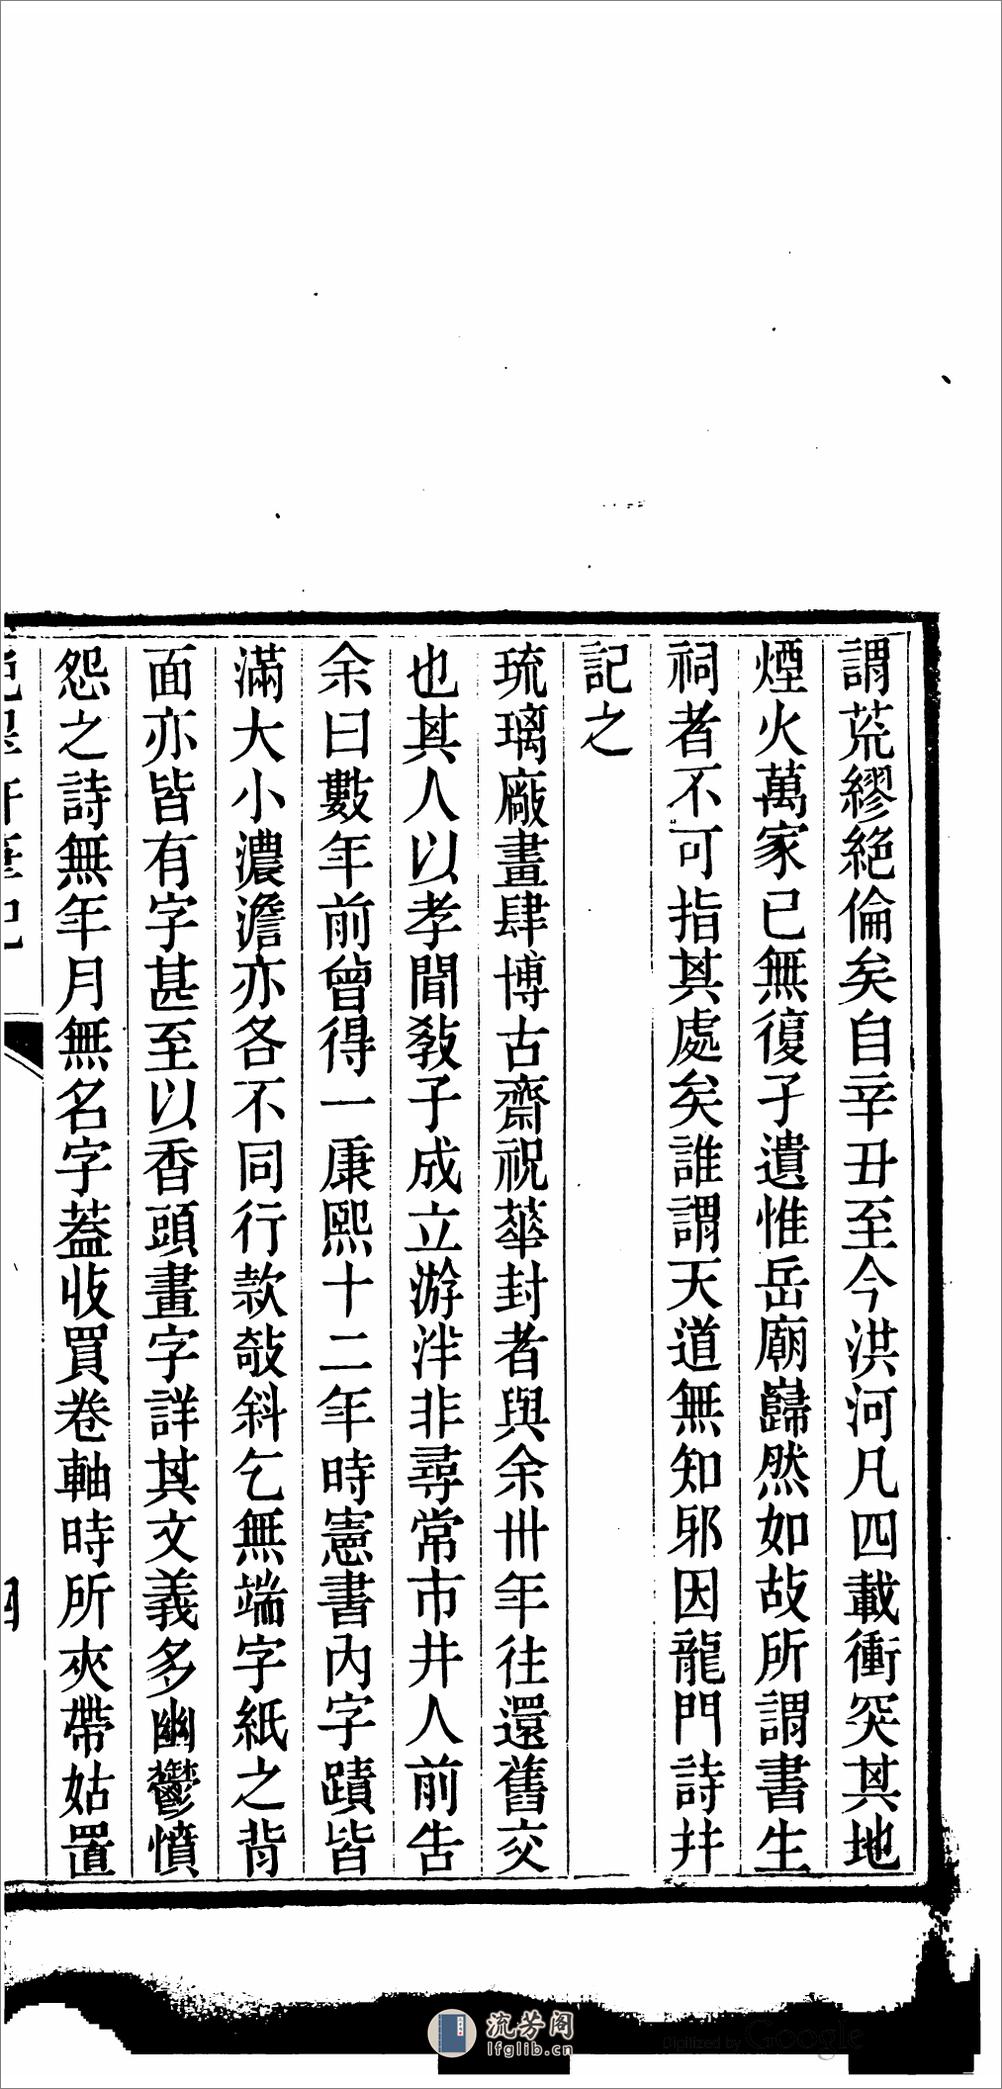 謂荒繆絕倫矣自辛丑至今洪河凡四載衝突其地
煙火萬家已無復孑遺惟岳廟巋然如故所謂書生
祠者不可指其處矣誰謂天道無知邪因龍門詩幷
記之
琉璃廠畫肆博古齋祝華封者與余卅年往還舊交
也其人以孝聞敎子成立游泮非尋常市井人前告
余曰數年前曾得一康熙十二年時憲書內字蹟皆
滿大小濃澹亦各不同行款敧斜乞無端字紙之背
面亦皆有字甚至以香頭畫字詳其文義多幽鬱憤
怨之詩無年月無名字蓋收買卷軸時所夾帶姑置
流芳阁
lfglib.cn
Digitized by Google